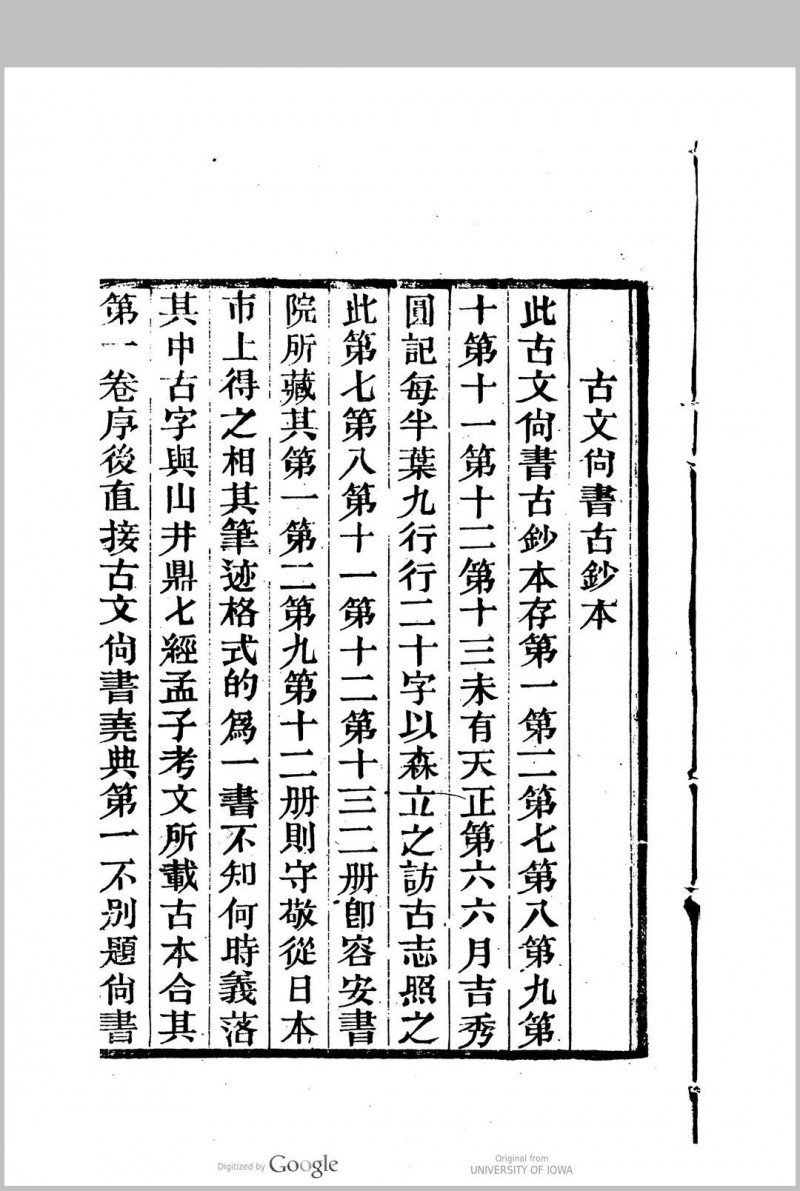 古文尙書古鈔本
此古文尙書古鈔本存第一第二第七第八第九第
十第十一第十二第十三未有天正第六六月吉秀
圓記每半葉九行行二十字以森立之訪古志照之
此第七第八第十一第十二第十三二册卽容安書
院所藏其第一第二第九第十二册則守敬從日本
市上得之相其筆迹格式的爲一書不知何時義落
其中古字與山井鼎七經孟子考文所載古本合其
第一卷序後直接古文尙書堯典第一不別題尙書
Digitized by Google
Original from
UNIVERSITY OF IOWA